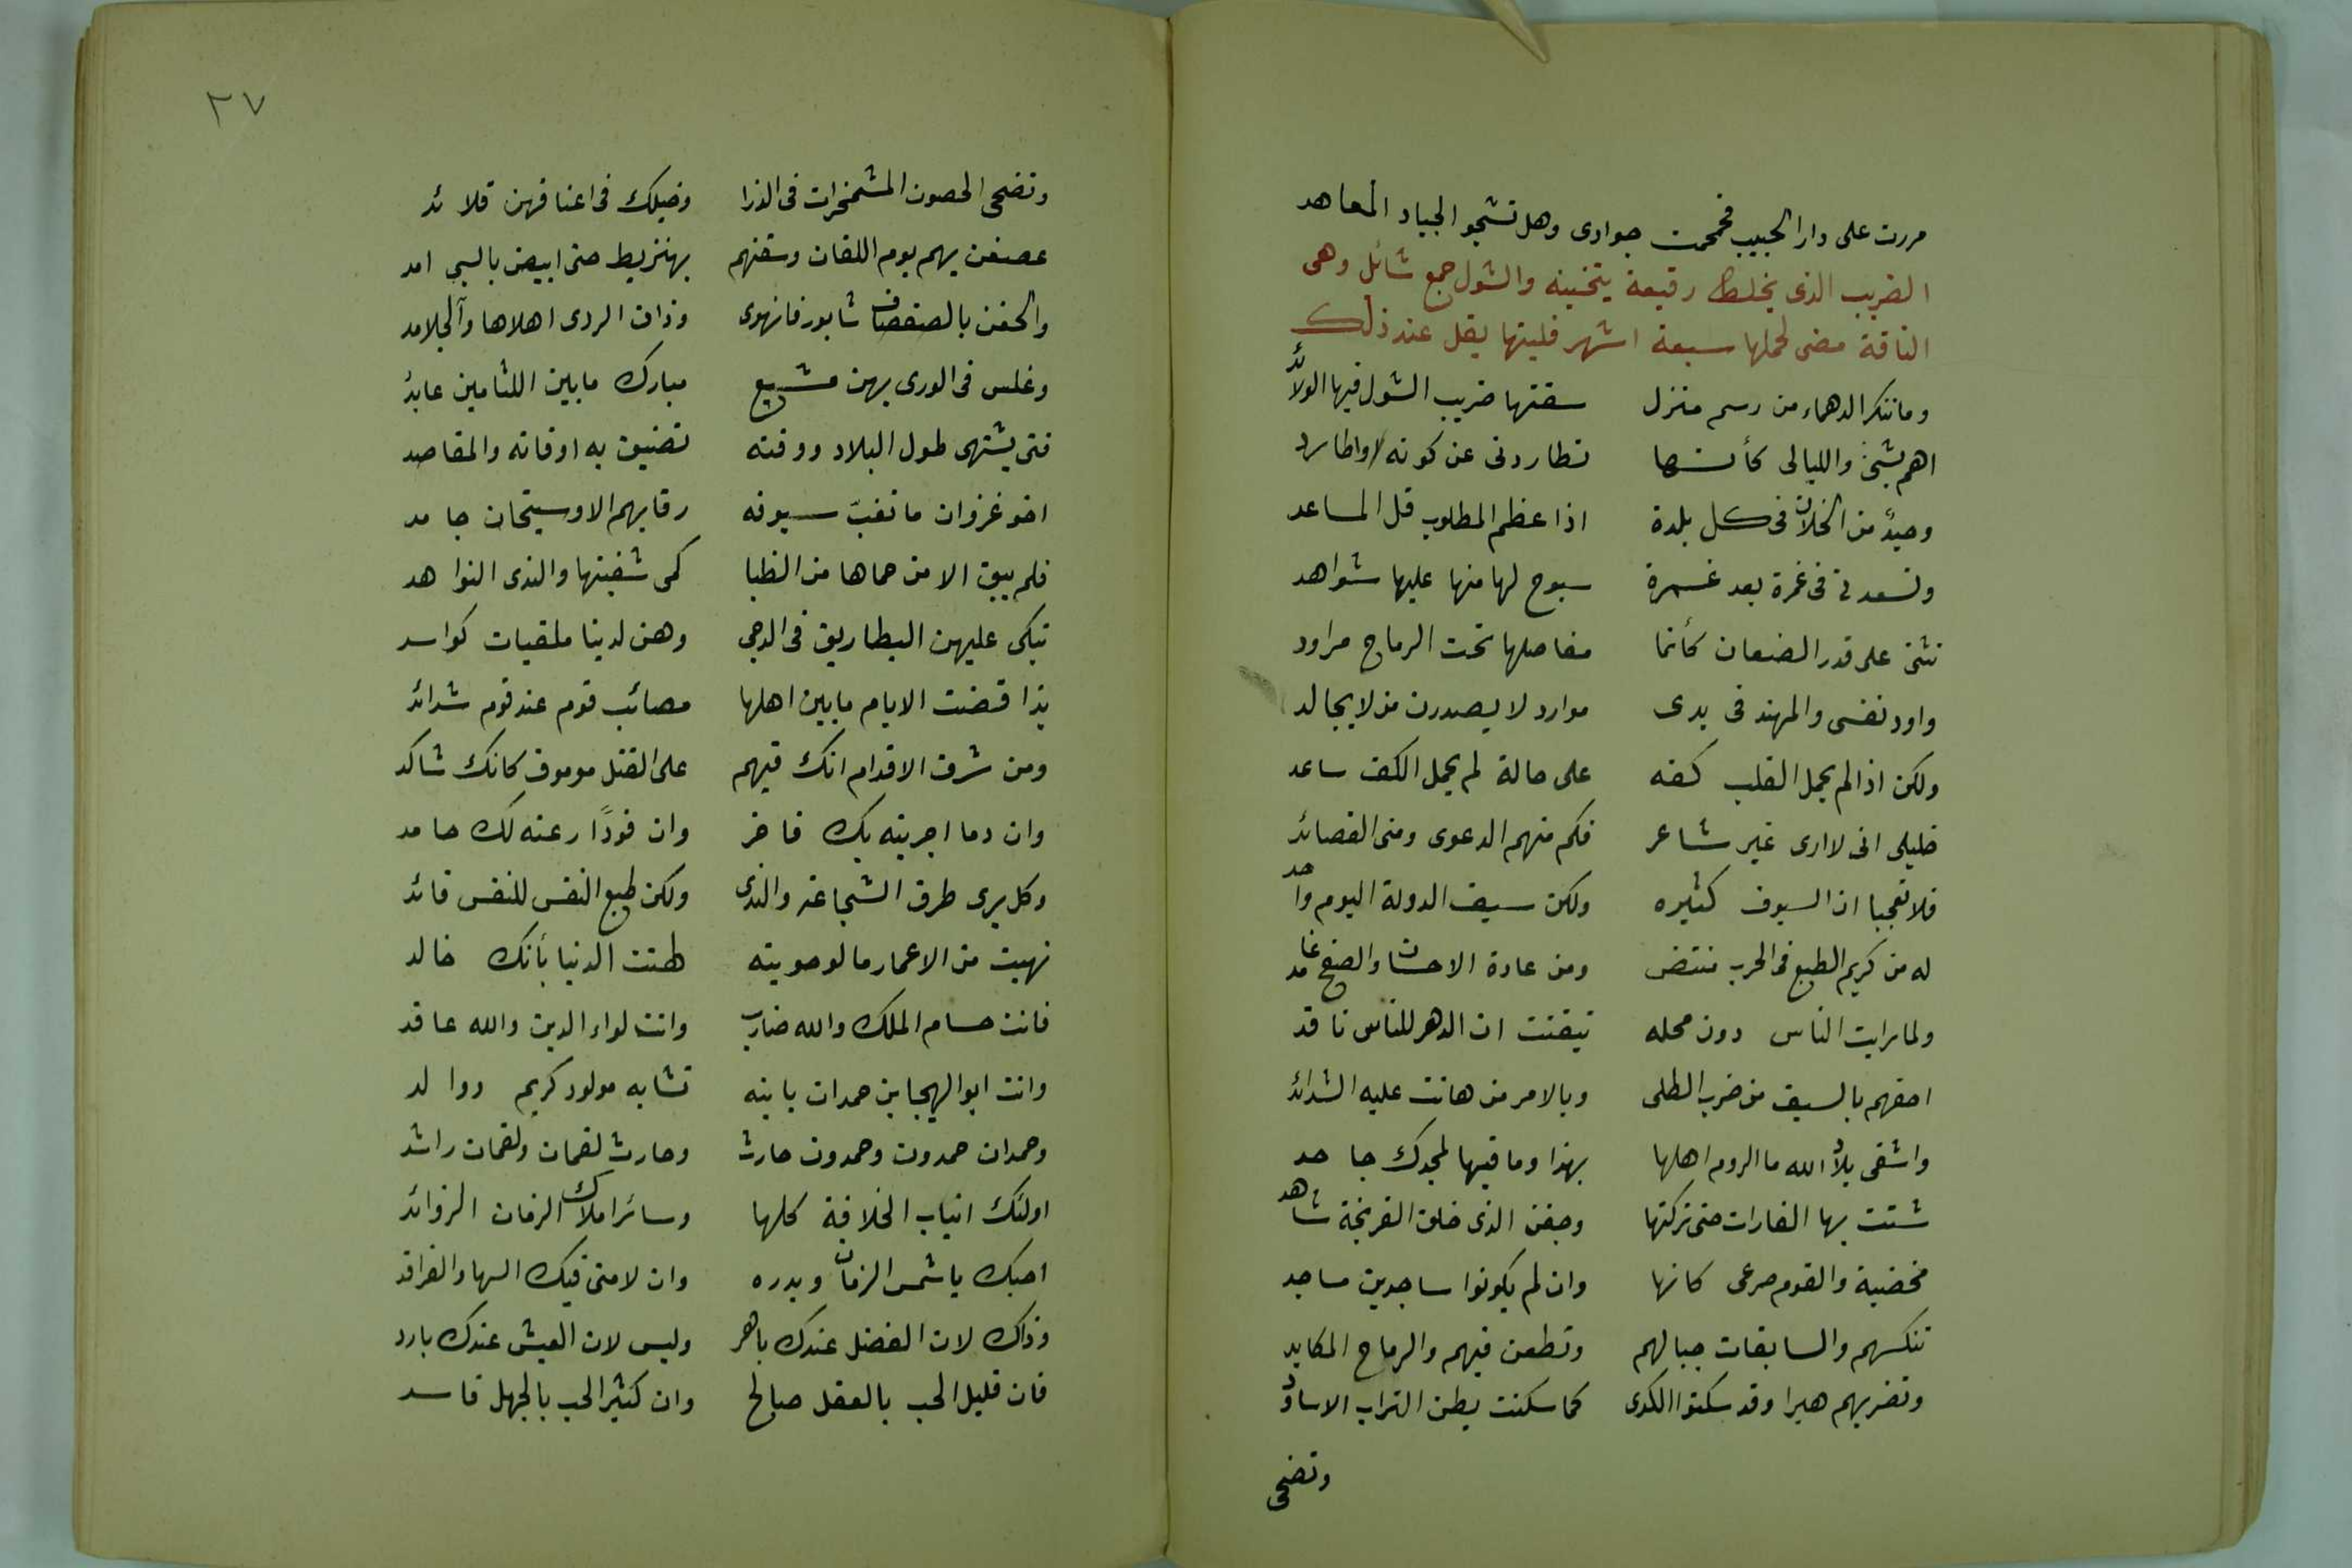 مررت على دار الحبيب فحمحمت جوادى وهل تشجو الجياد المعاهد
الضريب الذى يخلط رقيعة يتخينه والشول جمع شائل وهى
الناقة مضى لحملها سبعة اشهر فلينها يقل عند ذلك
وما تنكر الدهماء من رسم منزل سقتها ضريب الشول فيها الولائد
اهم بشئ والليالى كأنها تطاردنى عن كونه واطارد
وحيدً من الخلان فى كل بلدة اذا عظم المطلوب قل المساعد
وتسعدنى فى غمرة بعد غمرة سبوح لها منها عليها شواهد
تثنى على قدر الضعان كأنما مفاصلها تحت الرماح مراود
واورد نفسى والمهند فى يدى موارد لا يصدرن من لا يجالد
ولكن اذا لم يحمل القلب كفه على حالة لم يحمل الكف ساعد
خليلى انى لا ارى غير شاعر فكم منهم الدعوى ومنى القصائد
فلا تعجبا ان السيوف كثيره ولكن سيف الدولة اليوم واحد
له من كريم الطبع فى الحرب منتض ومن عادة الاحسان والصفح غامد
ولما رايت الناس دون محله تيقنت ان الدهر للناس ناقد
احقهم بالسيف من ضرب الطلى وبالامر من هانت عليه الشدائد
واشقى بلاد الله ما الروم اهلها بهذا وما فيها لمجدك جاحد
شننت بها الغارات حتى تركتها وجفن الذى خلف الفرنجة شاهد
مخضبة والقوم صرعى كانها وان لم يكونوا ساجدين مساجد
تنكسهم والسابقات جبالهم وتطعن فيهم والرماح المكايد
وتضربهم هبرا وقد سكنوا الكدى كما سكنت بطن التراب الاساود
وتضحى
٢٧
وتضحى الحصون المشمخرات فى الذرا وخيلك فى اعناقهن قلائد
عصفن بهم يوم اللقان وسقنهم بهنزيط حتى ابيض بالسبى امد
والحقن بالصفصاف شابور فانهوى وذاق الردى اهلاها والجلامد
وغلس فى الورى بهن مشيع مبارك ما بين اللثامين عابد
فتى يشتهى طول البلاد ووقته تضيق به اوقاته والمقاصد
اخو غزوان ما تغب سيوفه رقابهم الا وسيحان جامد
فلم يبق الا من حماها من الظبا لمى شفتيها والندى النواهد
تبكى عليهن البطاريق فى الدجى وهن لدينا ملقيات كواسد
بذا قضت الايام ما بين اهلها مصائب قوم عند قوم شدائد
ومن شرف الاقدام انك فيهم على القتل موموق كانك شاكد
وان دما اجريته بك فاخر وان فودًا رعته لك حامد
وكل يرى طرق الشجاعة والندى ولكن طبع النفس للنفس قائد
نهبت من الاعمار ما لو حويته هنئت الدنيا بأنك خالد
فانت حسام الملك والله ضارب وانت لواء الدين والله عاقد
وانت ابو الهيجا بن حمدان يا بنه تشابه مولود كريم ووالد
وحمدان حمدون وحمدون حارث وحارث لقمان ولقمان راشد
اولئك انياب الخلافة كلها وسائر املاك الزمان الزوائد
احبك يا شمس الزمان وبدره وان لامنى فيك السها والفراقد
وذاك لان الفضل عندك باهر وليس لان العيش عندك بارد
فان قليل الحب بالعقل صالح وان كثير الحب بالجهل فاسد